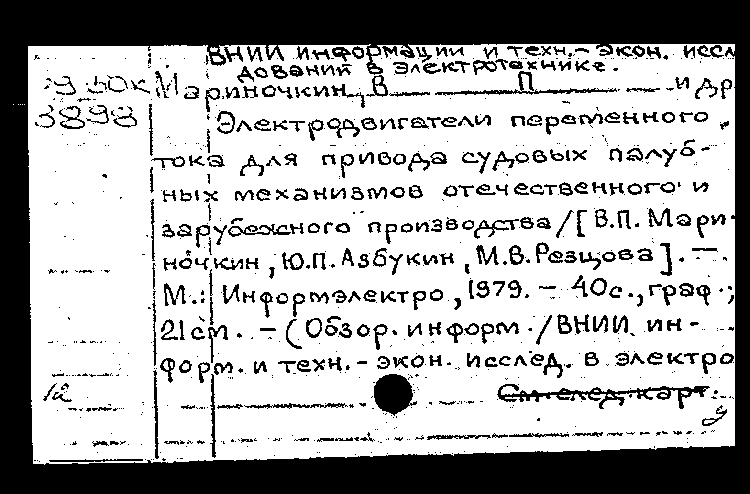 ВНИИ информации и техн.- экон. иссл
дований в электротехнике.
Мариночкин, В П и др
3898
Электродвигатели переменного
тока для привода судовых палуб-
ных механизмов отечественного и
зарубежного производства/[В.П. Мари-
ночкин, Ю.П. Азбукин, М.В. Резцова]. —.
М.: Информэлектро, 1979. - 40с., граф.;
21см. - (Обзор. информ./ВНИИ ин-
форм. и техн.- экон. исслед. в электро
12 См. след. карт.